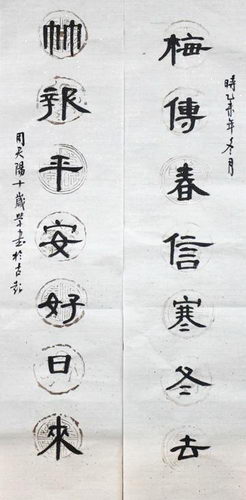 時乙未年冬月
梅傳春信寒冬去
竹報平安好日來
周天陽十歲學書於古彭